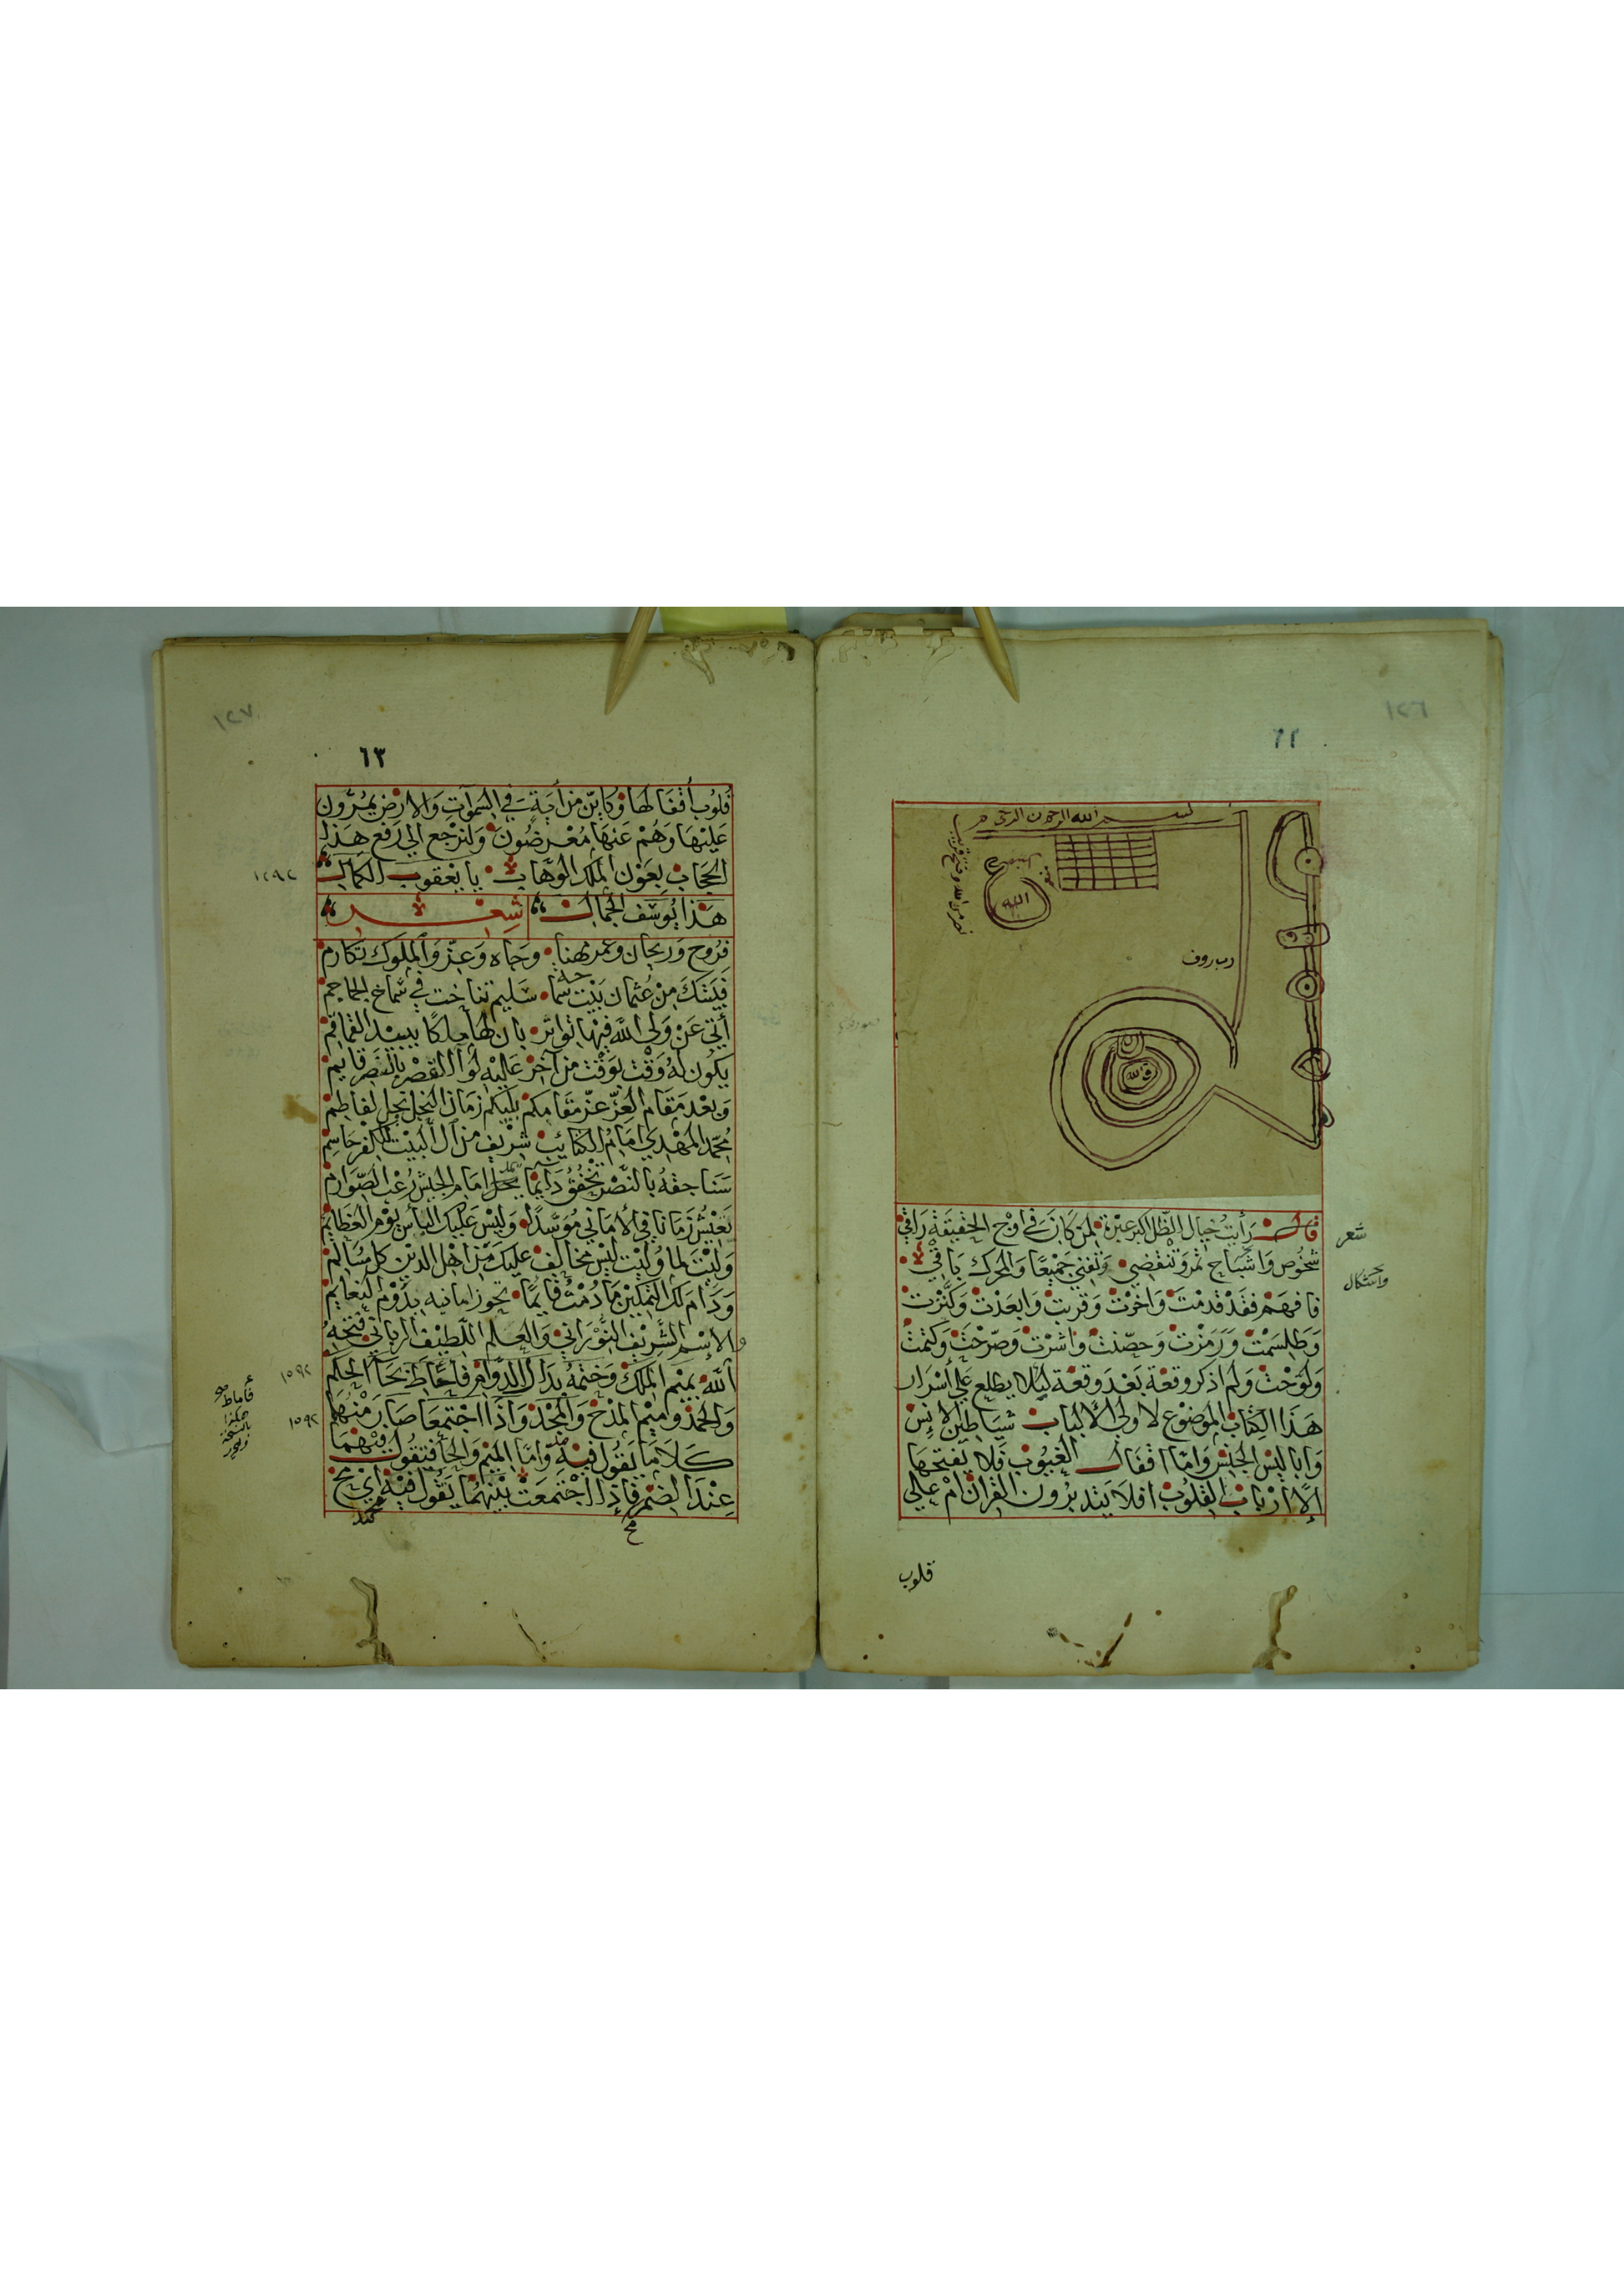 ٦٢
بسم الله الرحمن الرحيم
نصر من الله وفتح قريب
الله
رب روف
الله
قال رأيت خيال الظل اكبر عبرة لمن كان في اوج الحقيقة راقي
شعر
شخوص واشباح تمر وتنقضي وتفني جميعا والمحرك باقي
واشكال
فافهم فقد قدمت واخرت وقربت وابعدت وكنزت
وطلسمت ورمزت وحصنت واشرت وصرحت وكتمت
ولوحت ولم اذكر وقعة بعد وقعة ليلا يطلع علي أسرار
هذا الكتاب الموضوع لاولي الألباب شياطين الانس
وابا ليس الجنس واما اقفال الغيوب فلا يفتحها
إلا أرباب القلوب افلا يتدبرون القران ام علي
قلوب
٦٣
قلوب أقفالها وكاين من أية في السموات والارض يمرون
عليها وهم عنها معرضون ولنرجع الي رفع هذا
الحجاب بعون الملك الوهاب يا يعقوب الكمال
١٢٩٢
هذا يوسف الجمال شعر
فروح وريحان وعمر هنا وجاه وعز والملوك تكارم
فبشك من عثمان بيت سما سليم تناخت في شماخ الجماجم
أتي عن ولي الله فيها تواتر بان لها ملكا يبيد القماقم
يكون له وقت لوقت من آخر عليه لوا القصر بالنصر قايم
وبعد مقام العز عز مقامكم يليكم زمان النجل نجل لفاطم
محمد المهدي امام الكتايب شريف من آل البيت للكفر حاسم
سناجقه بالنصر تخفق دايما امام الجيش رعب الصوارم
تعيش زمانا في الأماني موسدا وليس عليك الباس يوم العظايم
وليت لما وليت ليس مخالف عليك من اهل الدين كل مسالم
ودام لك التمكين ما دمت قايما تحوز امانيه بدوم النعايم
والاسم الشريف النوراني والعلم اللطيف الرباني فتحه
الله بميم الملك وختمه بدال الدوام فأحاط بحا الحلم
١٥٩٢
والحمد وميم المدح والمجد واذا اجتمعا صار منهما
١٥٩٢
كلاما يقول فيه واما الميم والحا فيقول فيهما
عند الضم فإذا اجتمعت بينهما يقول فيه اي مح
محمد
مح
فأماط
هكذا
بالنسخة